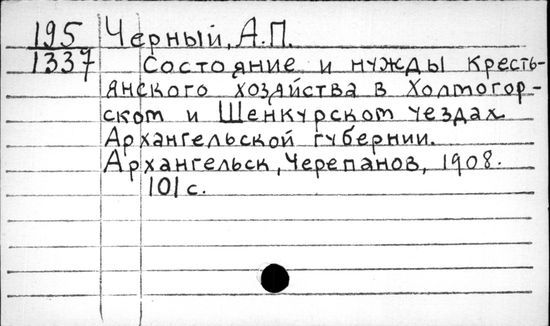 195 Черный, А.П.
1337 Состояние и нужды кресть-
янского хозяйства в Холмогор-
ском и Шенкурском уездах
Архангельской губернии.
Архангельск, Черепанов, 1908.
101 с.